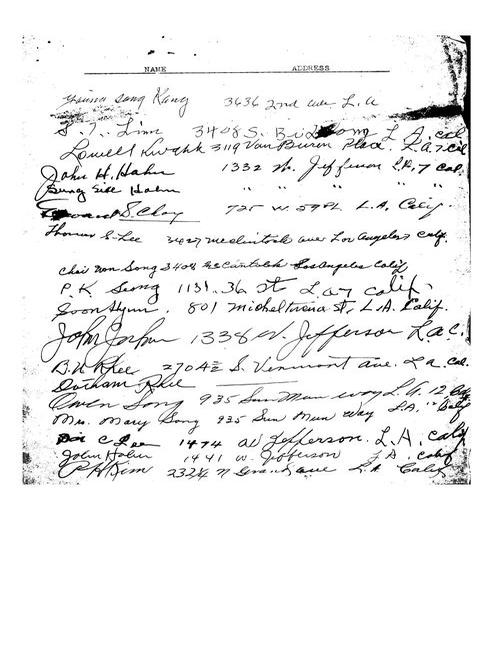 NAME ADDRESS
Young Song Kang 3636 2nd ave L.A
S. Y. Linn 3408 S. L.A. Cal
Lowell Kwahk 3119 Van Buren Place. L.A. 7 Cal
John H. Hahn 1332 W. Jefferson L.A. 7 Cal.
Bung Hahn " " " " "
S. Choy 725 W. 59 Pl. L.A. Calif.
Thomas S. Lee 3427 Mcclintock ave Los Angeles 7 Calif.
Chai Won Song 3408 Los Angeles Calif
P. K. Seong 1131. 36 St L a 7 calif.
Soon Hyun. 801 Micheltorena St, L.A. Calif.
John 1338 W. Jefferson L.A. C.
B. W. Rhee 2704½ S. Vermont ave. L.a. Cal.
Durham Rhee
Owen Song 935 Sun Mun way L.A. 12 Calif
Mrs. Mary Song 935 Sun Mun Way L.A. " Calif
C Lee 1474 W Jefferson. L.A, Calif
John Hahn 1441 W. Jefferson L.A. Calif
P H Kim Grand ave L.A Calif